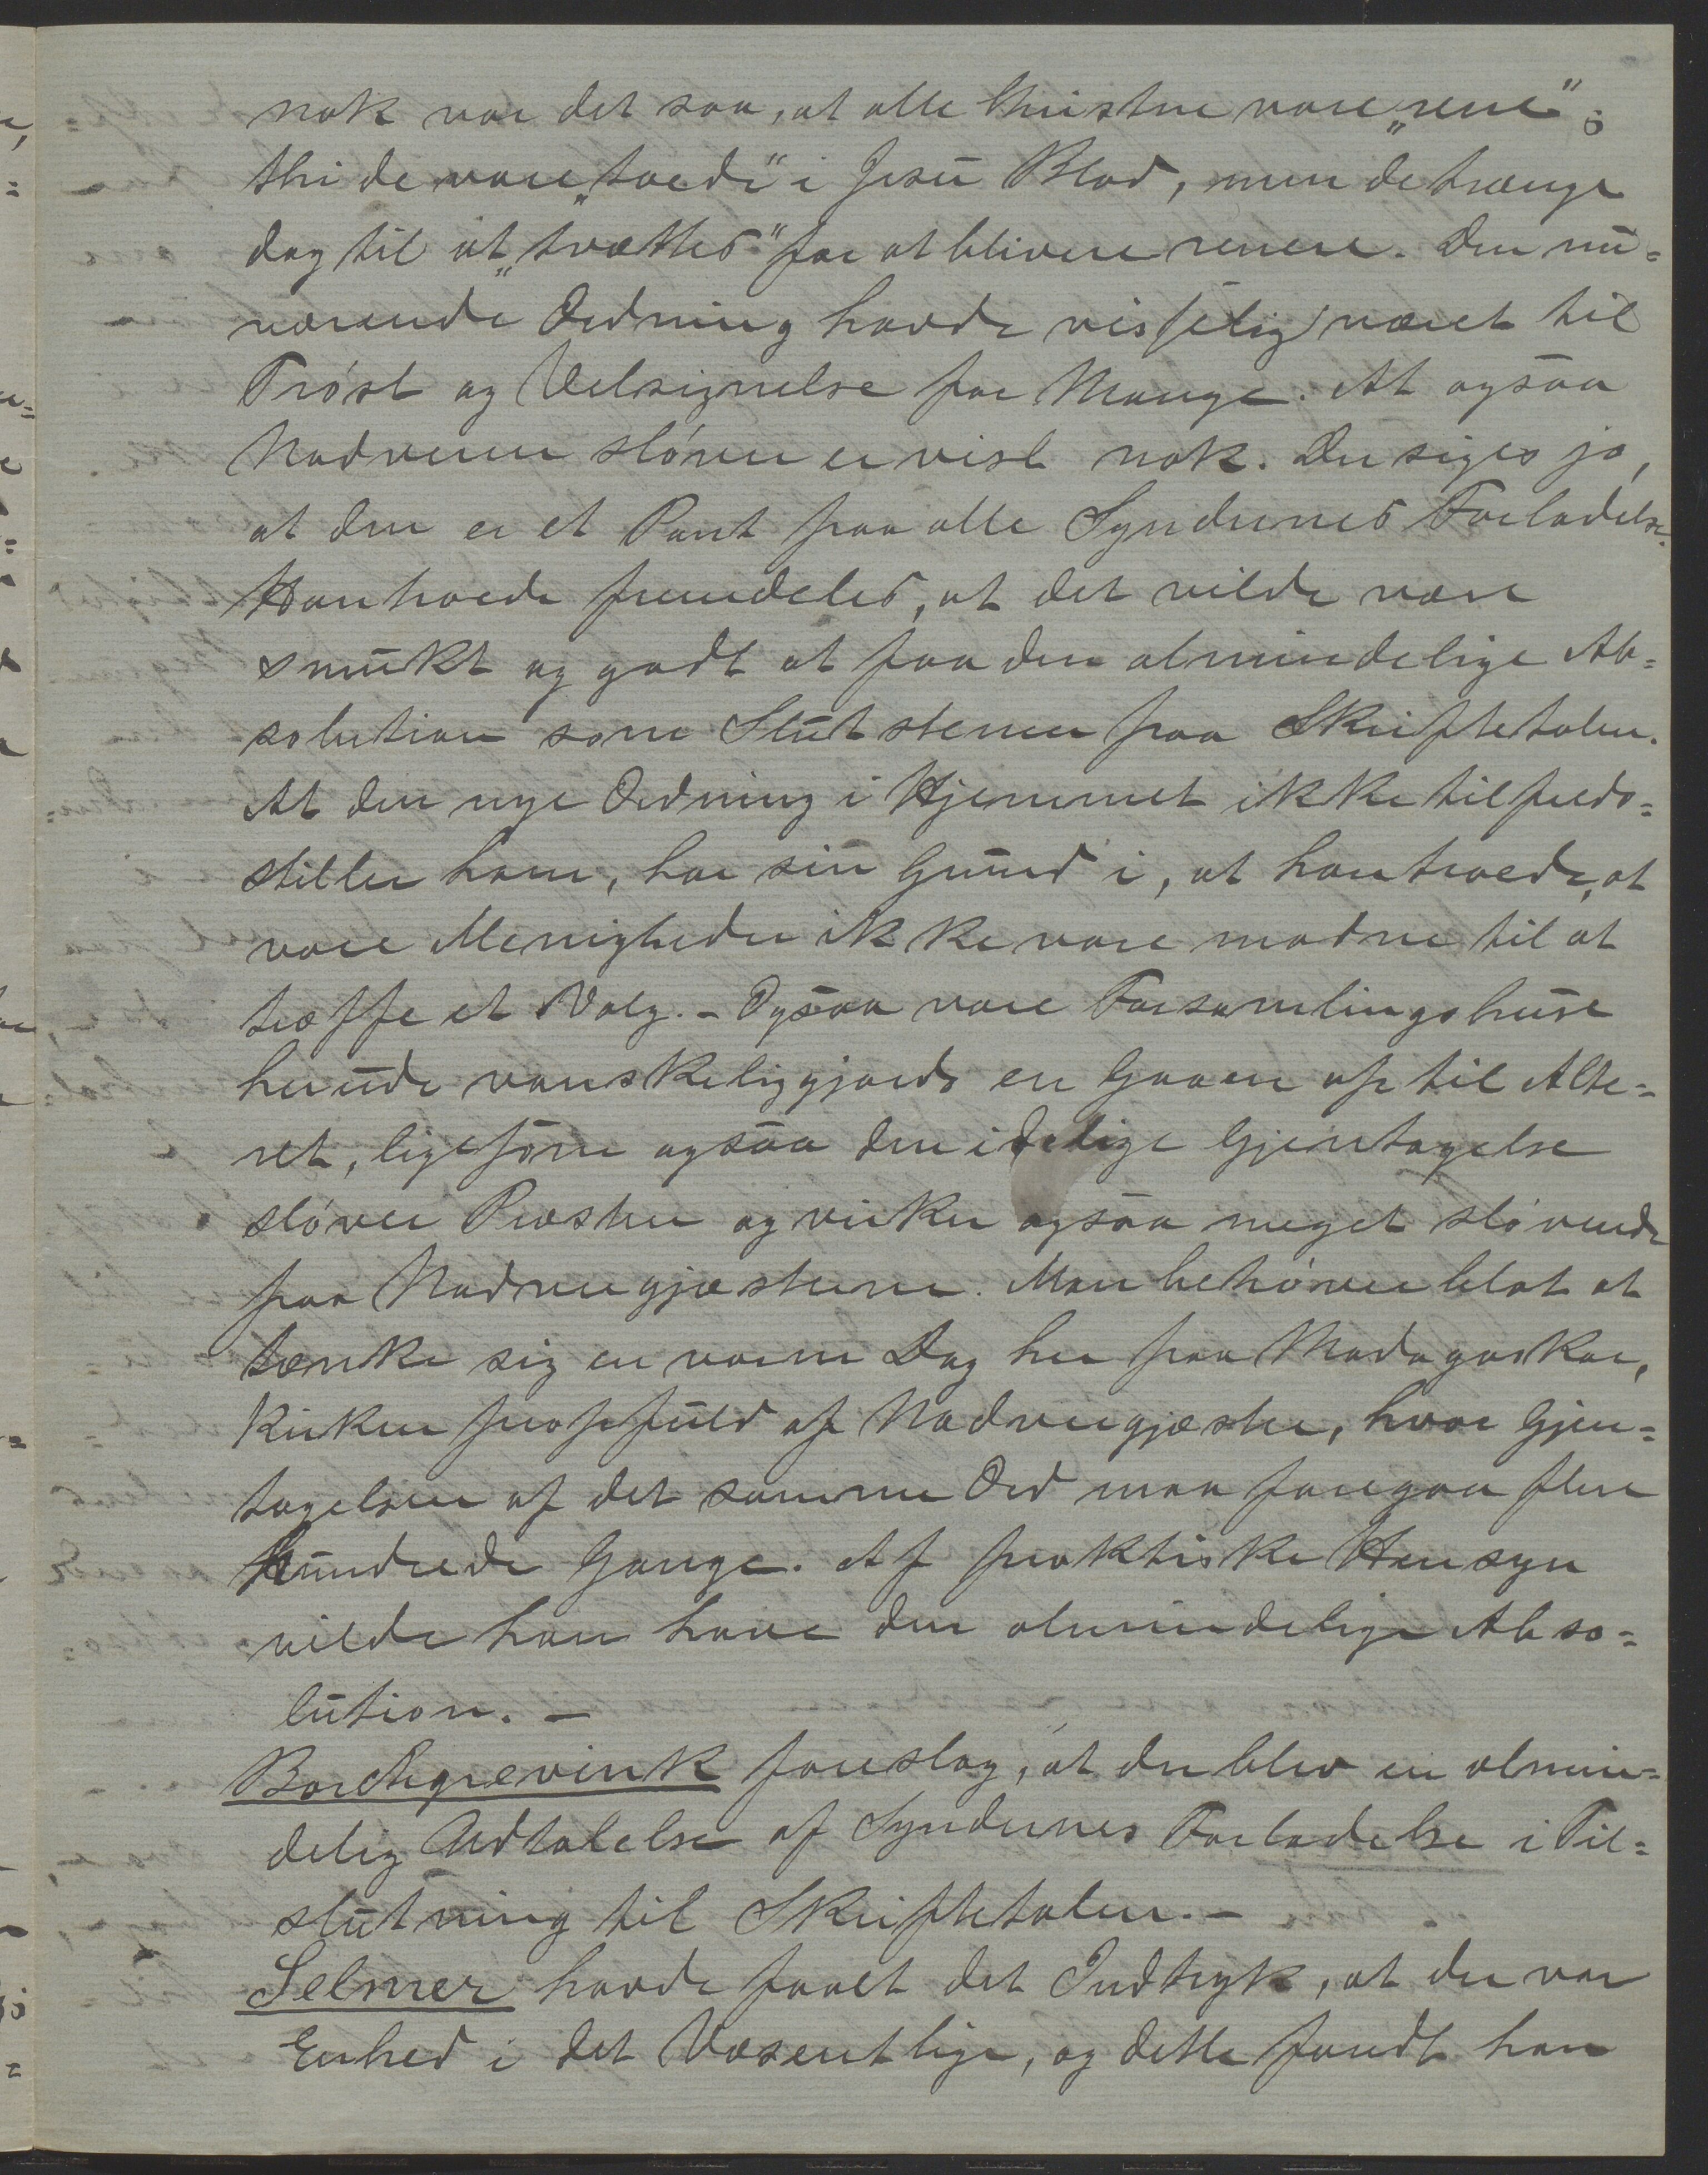 nok var det saa, at alle Christne vare „rene”;
thi de vare „toede” i Jesu Blod, men de trænge
dog til at „tvættes” for at blivere renere. Den nu=
værende Ordning havde visselig været til
Trøst og Velsignelse for Mange. At ogsaa
Nadveren sløver er vist nok. Der siges jo,
at den er et Pant paa alle Syndernes Forladelse.
Han troede fremdeles, at det vilde være
smukt og godt at faa den almindelige Ab=
solution som Slutstenen paa Skriftetalen.
At den nye Ordning i Hjemmet ikke tilfreds=
stiller ham, har sin Grund i, at han troede, at
vore Menigheder ikke vare modne til at
træffe et Valg. – Ogsaa vare Forsamlingshuse
herude vanskeliggjørds en Gaaen op til Alte=
ret, ligesom ogsaa den idelige Gjentagelse
sløver Presten og virker ogsaa meget sløvende
paa Nadvergjæsterne. Man behøver blot at
tænke sig en varm Dag her paa Madagaskar,
Kirken propfuld af Nadvergjæster, hvor Gjen=
tagelsen af det samme Ord maa foregaa flere
hundrede Gange. Af praktiske Hensyn
vilde han have den almindelige Abso=
lution. –
Borchgrevink foreslog, at der blev en almin=
delig Udtalelse af Syndernes Forladelse i Til=
slutning til Skriftetalen. –
Selmer havde faaet det Indtryk, at der var
Enhed i det Væsentlige, og dette fandt han